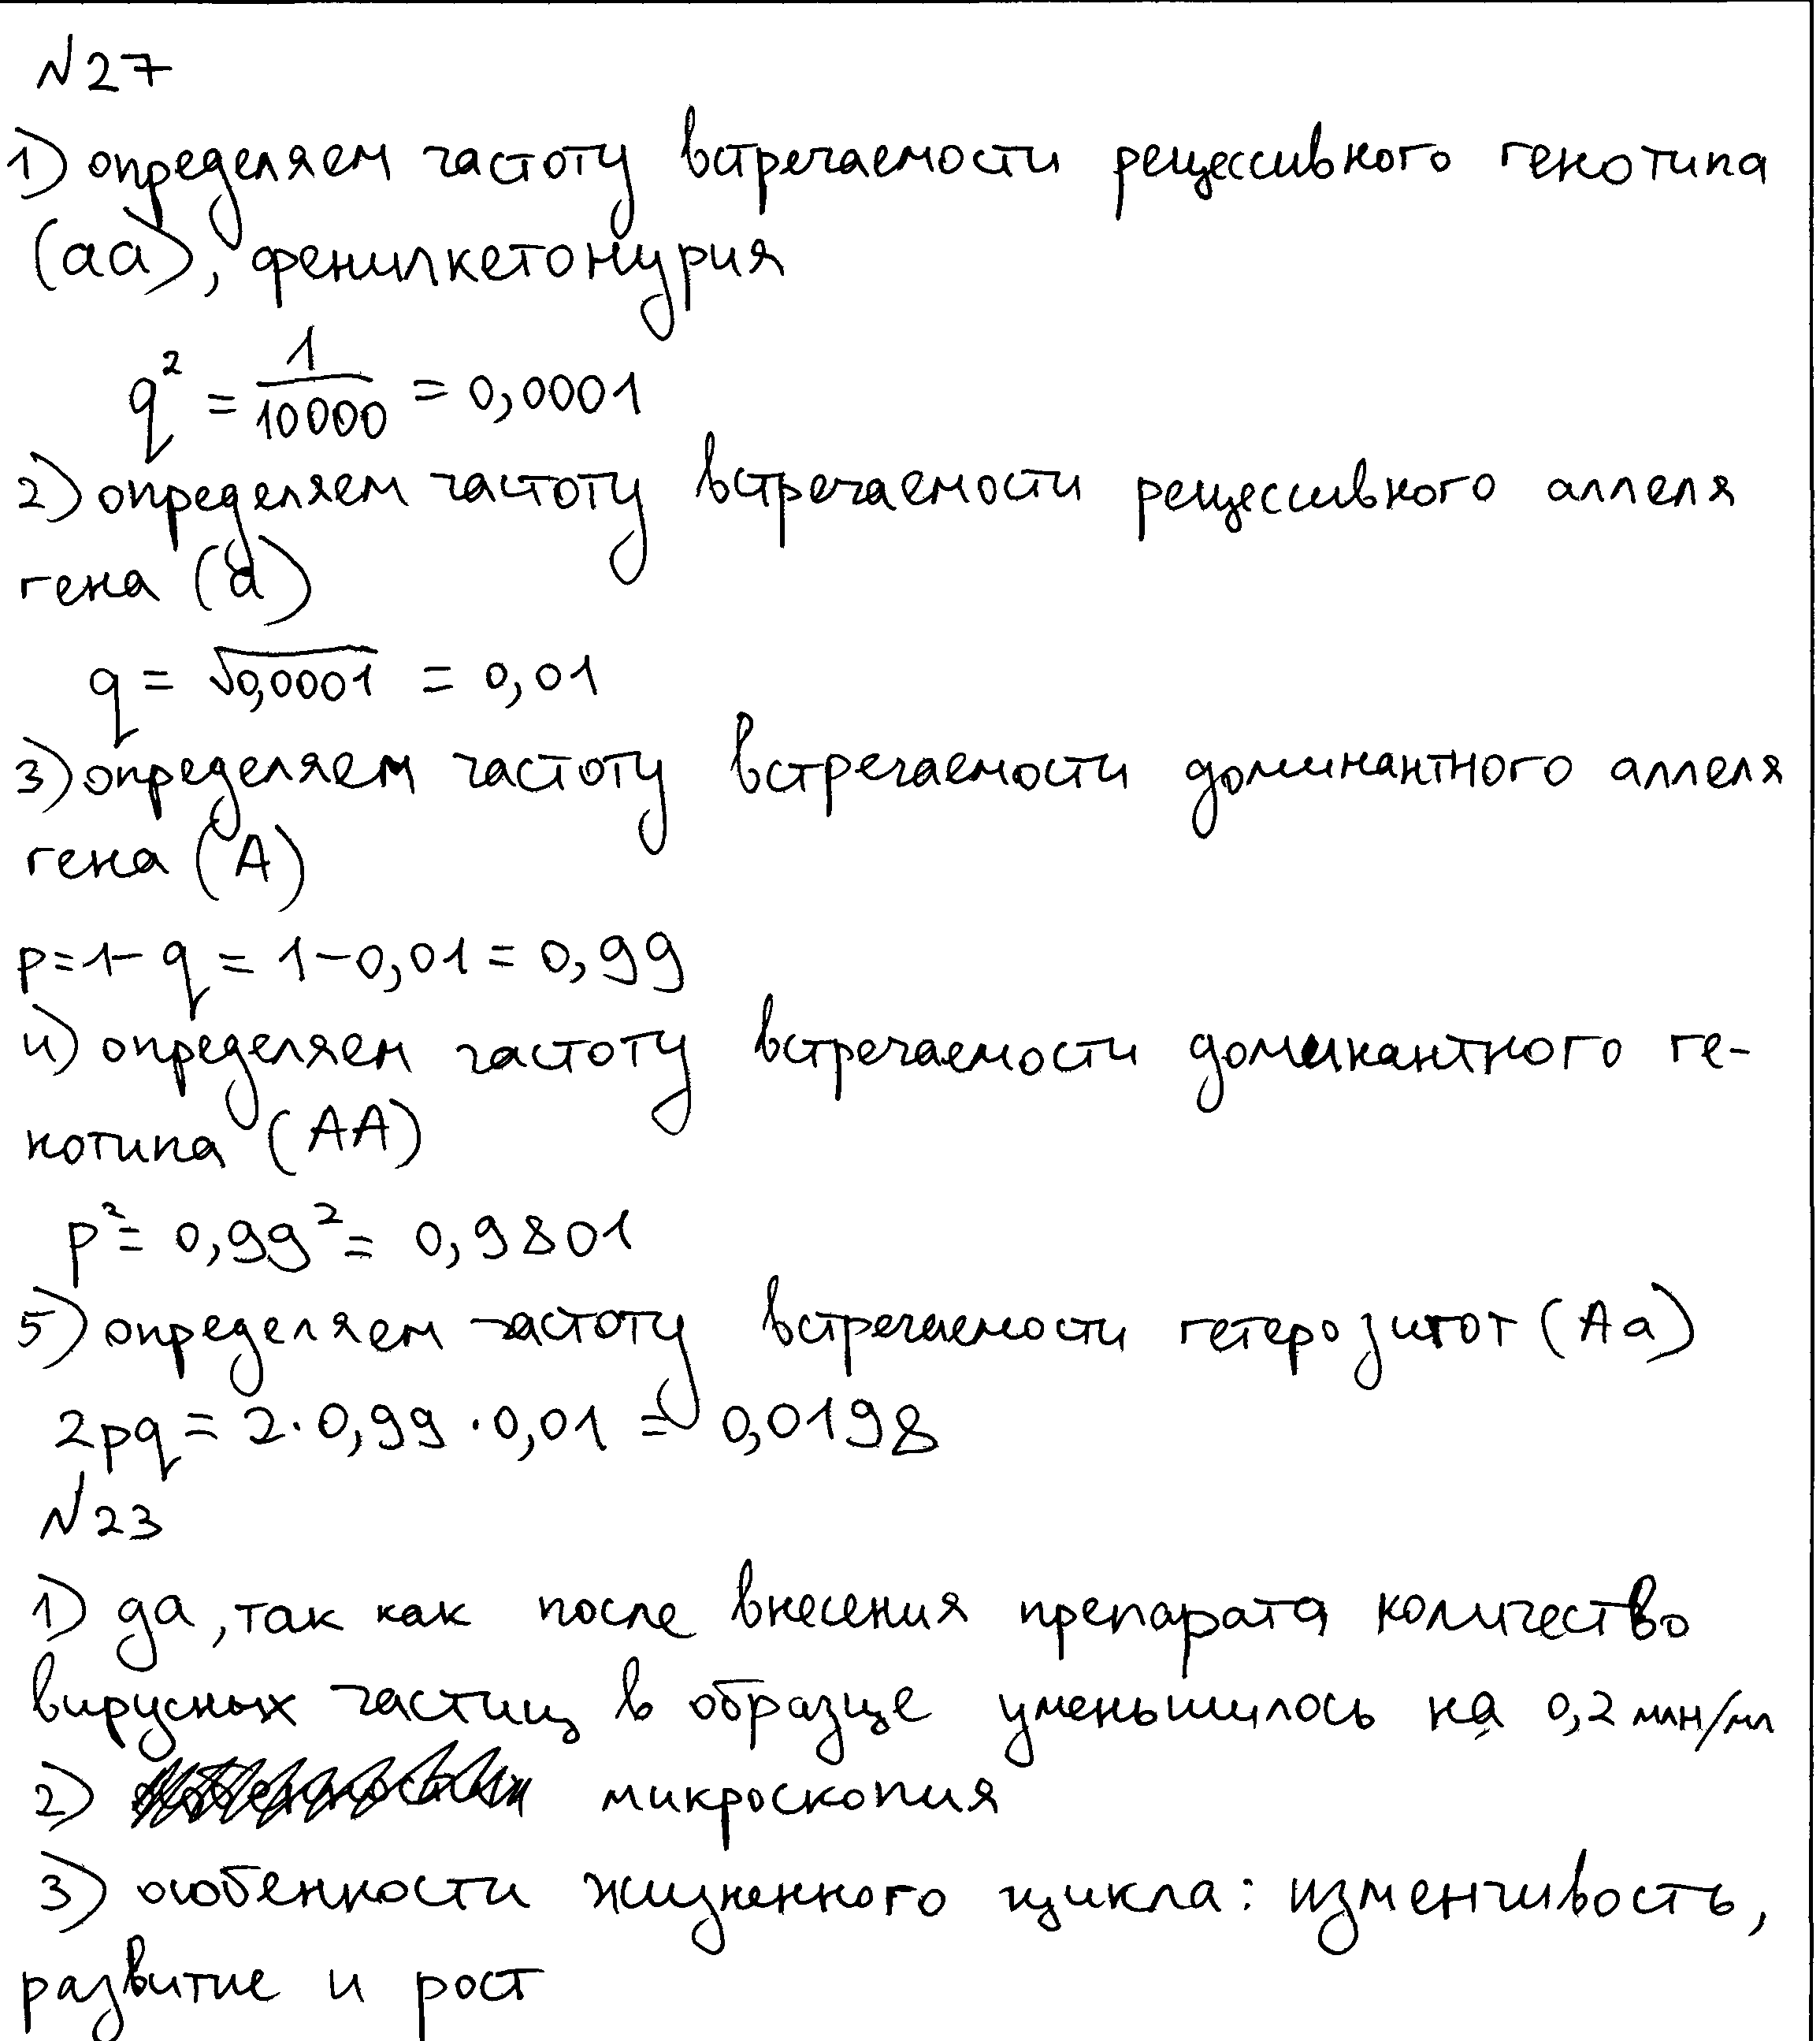 N27
1) определяем частоту встречаемости рецессивного генотипа
(аа), фенилкетонурия
q² = 1/10000 = 0,0001
2) определяем частоту встречаемости рецессивного аллеля
гена (а)
q = √0,0001 = 0,01
3) определяем частоту встречаемости доминантного аллеля
гена (А)
p=1-q = 1-0,01 = 0,99
4) определяем частоту встречаемости доминантного ге-
нотипа (АА)
p² = 0,99² = 0,9801
5) определяем частоту встречаемости гетерозигот (Аа)
2pq = 2·0,99·0,01 = 0,0198
N23
1) да, так как после внесения препарата количество
вирусных частиц в образце уменьшилось на 0,2 млн/мл
2) микроскопия
3) особенности жизненного цикла: изменчивость,
развитие и рост